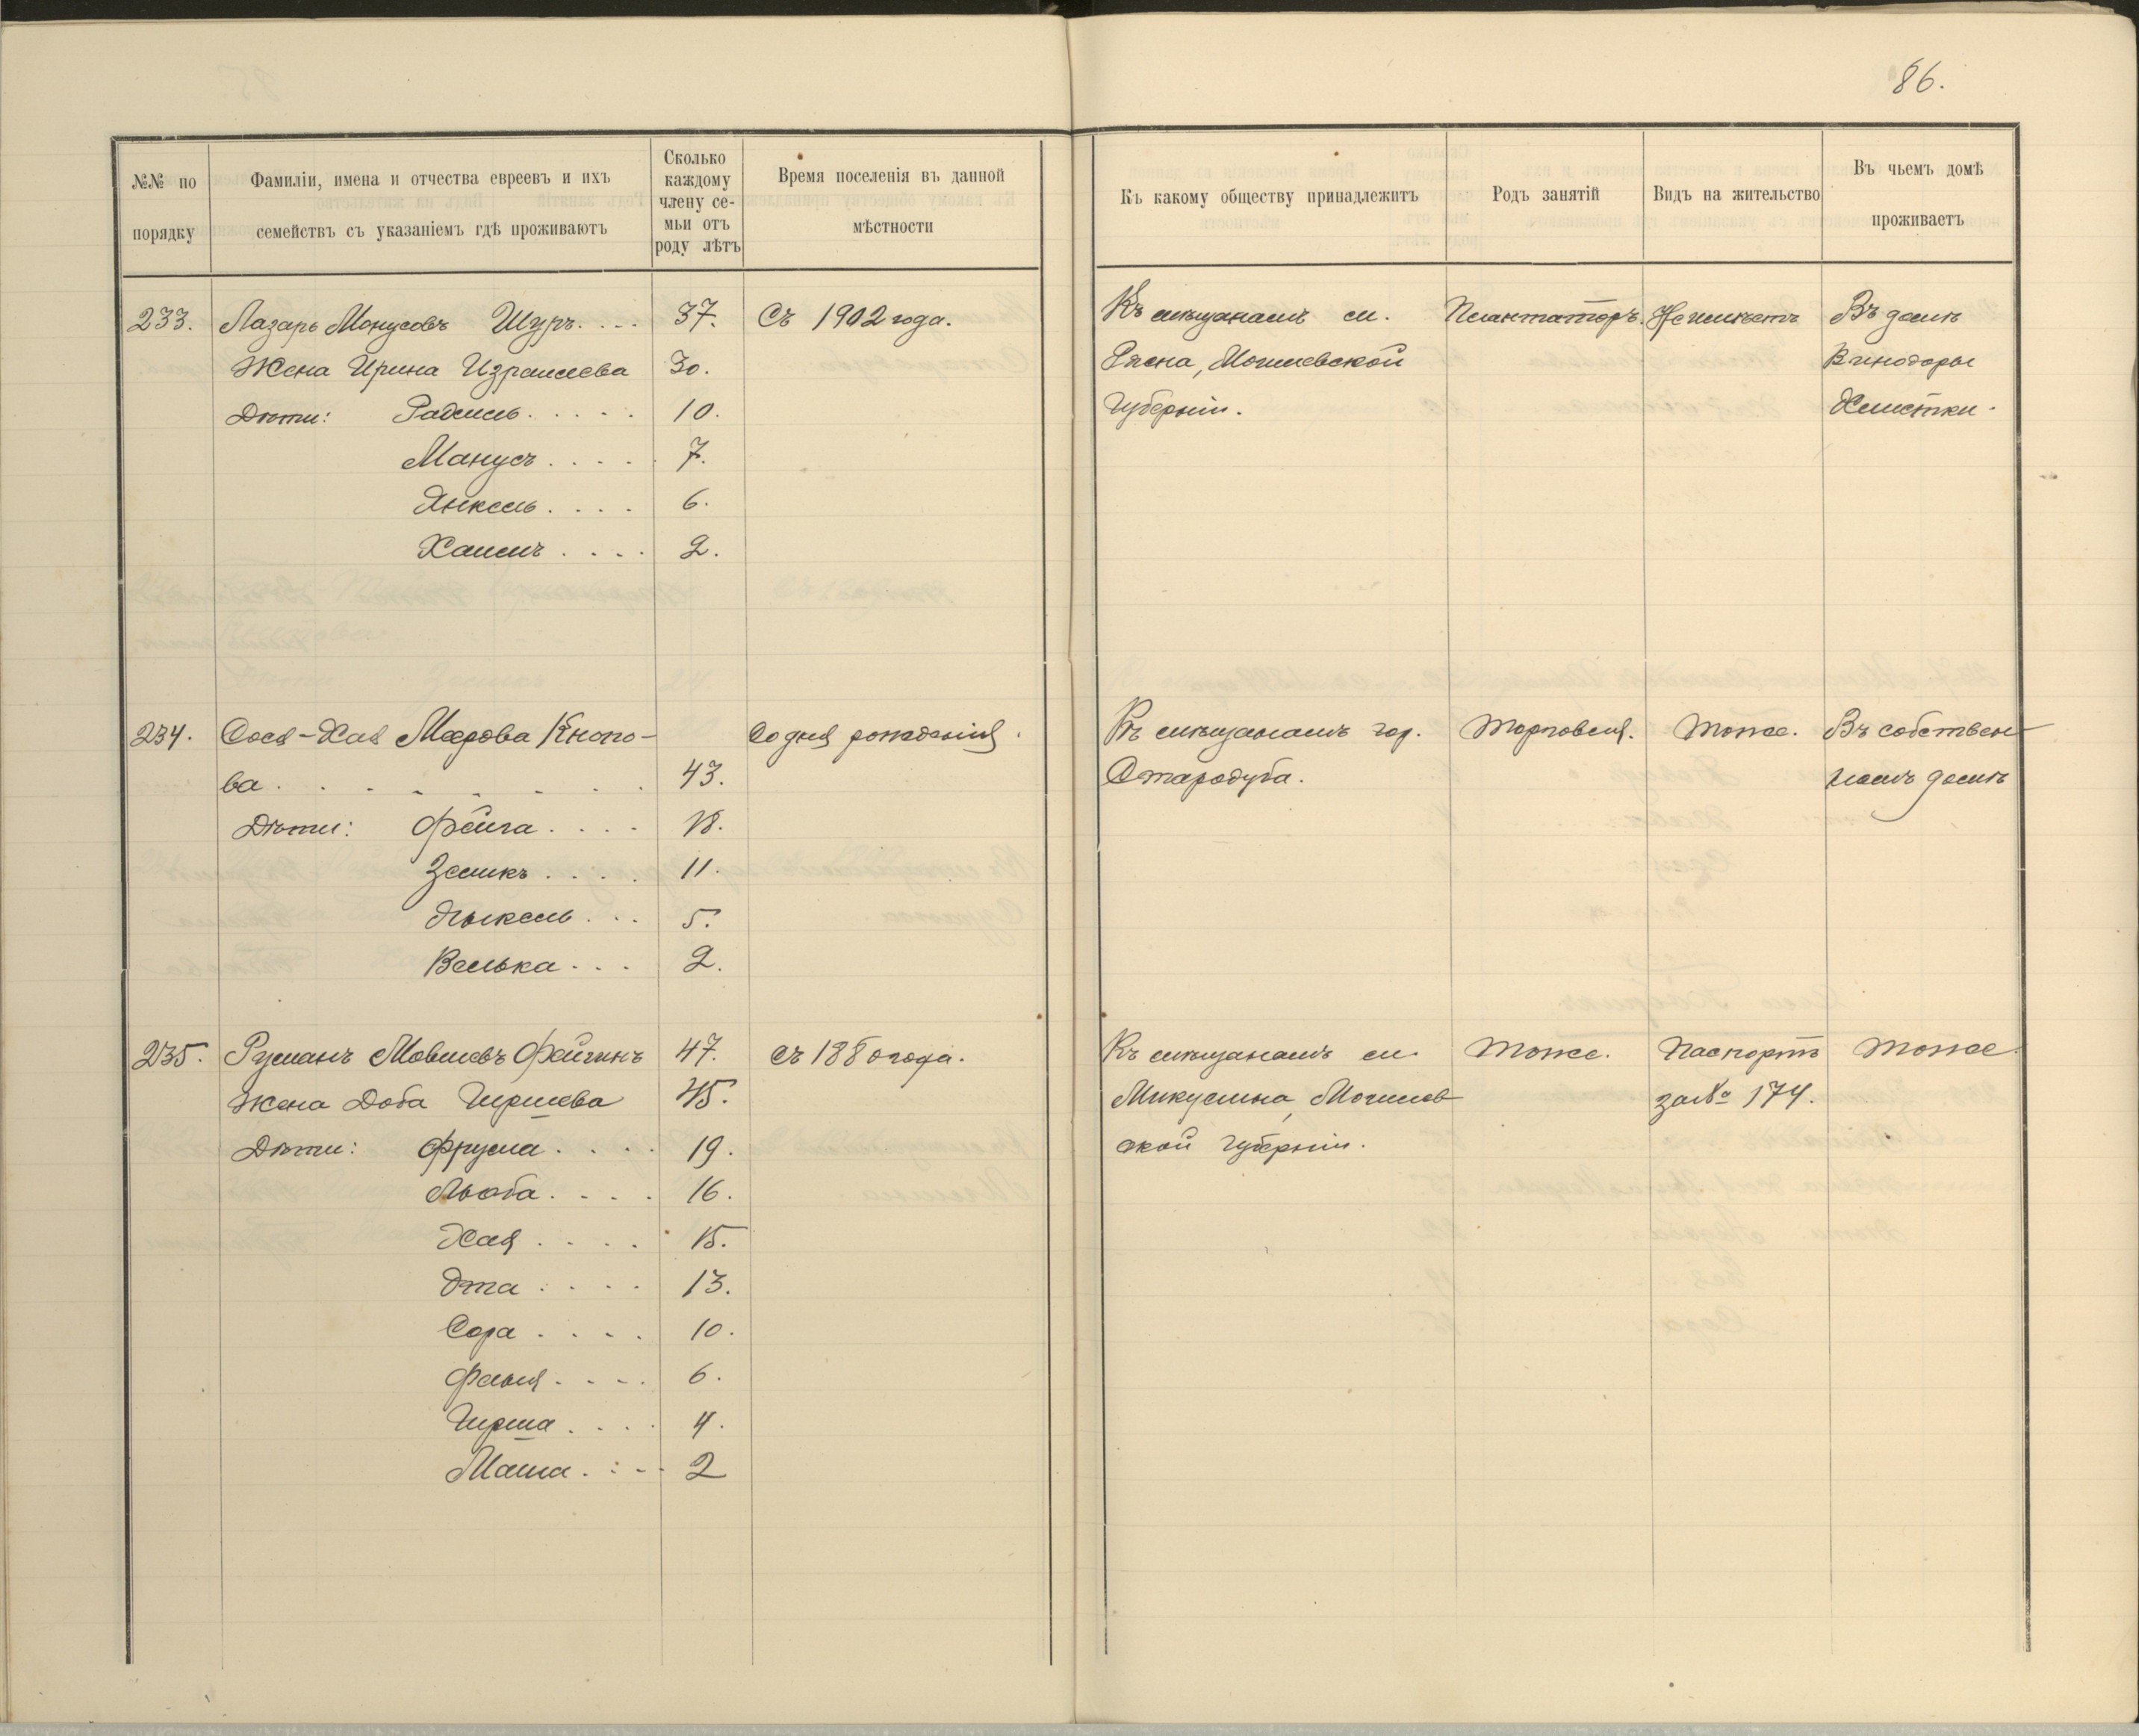 86.
№№ по порядку
Фамиліи, имена и отчества евреевъ и ихъ семействъ съ указаніемъ гдѣ проживаютъ
Сколько каждому члену семьи отъ роду лѣтъ
Время поселенія въ данной мѣстности
Къ какому обществу принадлежитъ
Родъ занятій
Видъ на жительство
Въ чьемъ домѣ проживаетъ
233. Лазарь Монусовъ Шуръ.... 37. Съ 1902 года. Къ мѣщанамъ м. Плантаторъ. Не имѣетъ Въ домѣ
Жена Ирина Израилева 30. Рясна, Могилевской
Дѣти: 10. Губерніи. Хлистки.
Манусъ.... 7.
Янкель.... 6.
Хаимъ.... 2.
234. Сося-Хая Меерова Кнопо- Со дня рожденія. Къ мѣщанамъ гор. Торговля. Тоже. Въ собствен-
ва........ 43. Стародуба. номъ домѣ
Дѣти: Фейга.... 18.
Зеликъ.... 11.
5.
Велька... 2.
235. Рувманъ Мовшевъ Фейгинъ 47. съ 1880 года. Къ мѣщанамъ м. Тоже. Паспортъ Тоже.
Жена Доба Гиршева 45. Микулина, Могилев- за № 174.
Дѣти: Фрума.... 19. ской Губерніи.
Люба.... 16.
Хая.... 15.
Эта.... 13.
Сора.... 10.
Фаня.... 6.
Гирша.... 4.
Маша.... 2